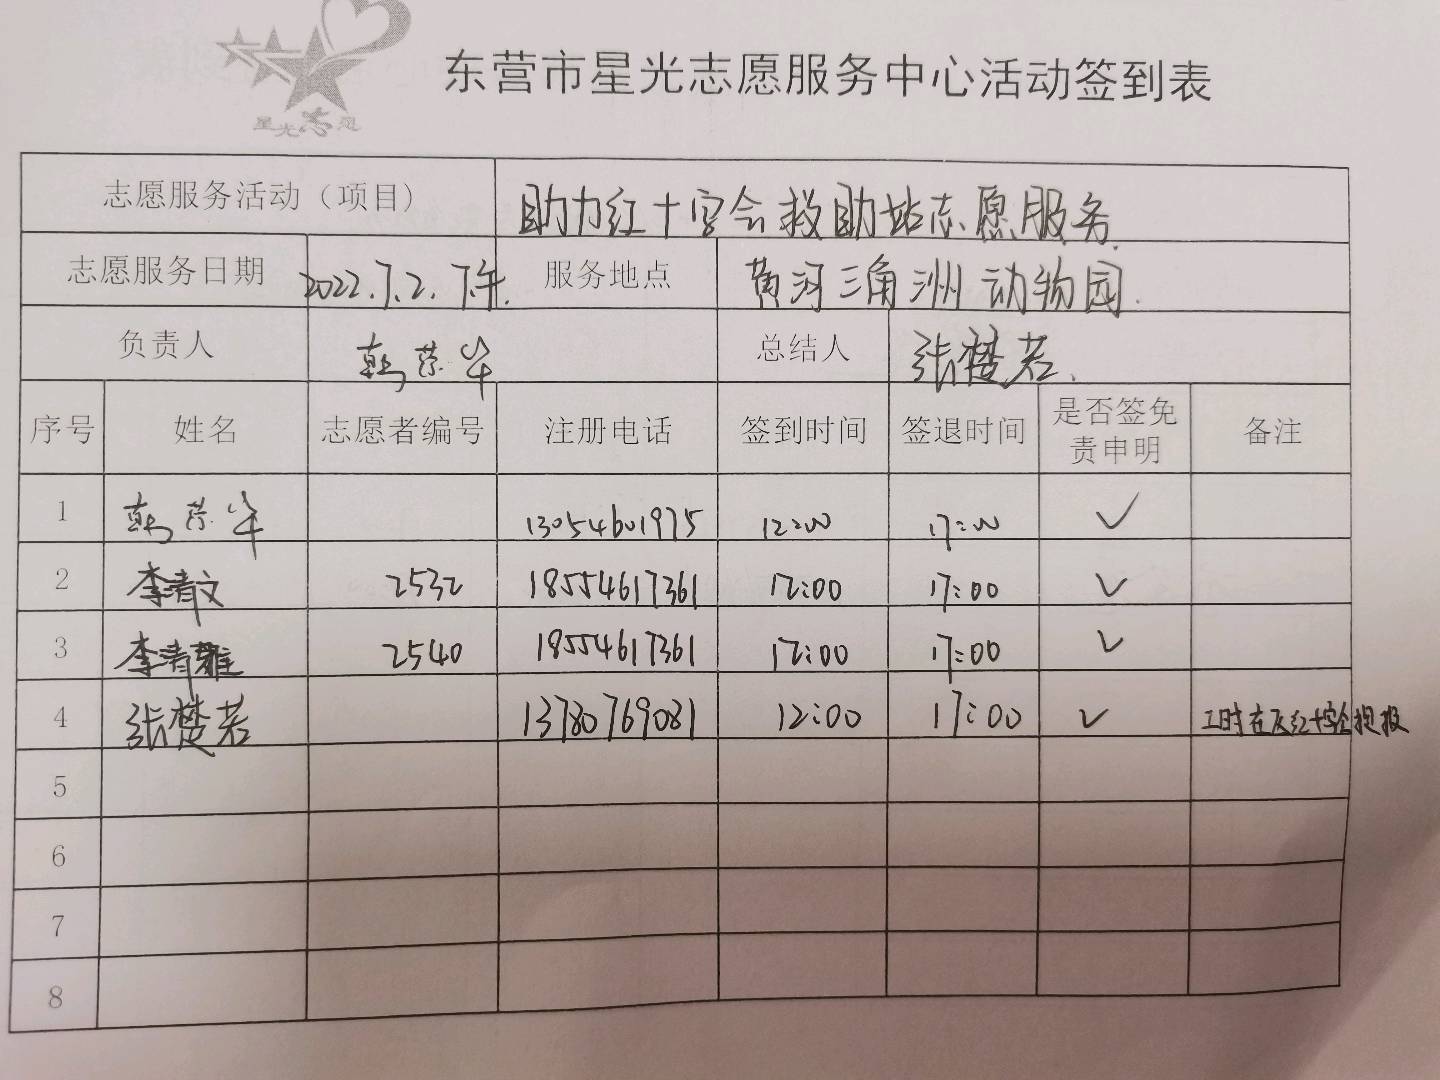 星光志愿
东营市星光志愿服务中心活动签到表
志愿服务活动（项目） 助力红十字会救助站志愿服务
志愿服务日期 2022.7.2.下午. 服务地点 黄河三角洲动物园.
负责人 韩荣华 总结人 张楚若.
序号 姓名 志愿者编号 注册电话 签到时间 签退时间 是否签免责申明 备注
1 韩荣华 13054601975 12:00 17:00 ✓
2 李清文 2532 18554617361 12:00 17:00 ✓
3 李清雅 2540 18554617361 12:00 17:00 ✓
4 张楚若 13780769081 12:00 17:00 ✓ 工时在区红十字会提报
5
6
7
8